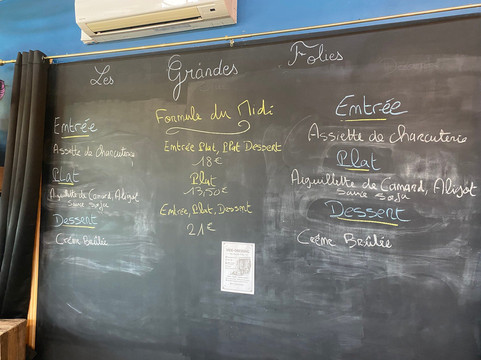 Les Grandes Folies
Entrée
Assiette de Charcuterie
Plat
Aiguillette de Canard, Aligot
sauce soja
Dessert
Crème Brûlée
Formule du Midi
Entrée Plat, Plat Dessert
18€
Plat
13,50€
Entrée, Plat, Dessert
21€
Entrée
Assiette de Charcuterie
Plat
Aiguillette de Canard, Aligot
sauce soja
Dessert
Crème Brûlée